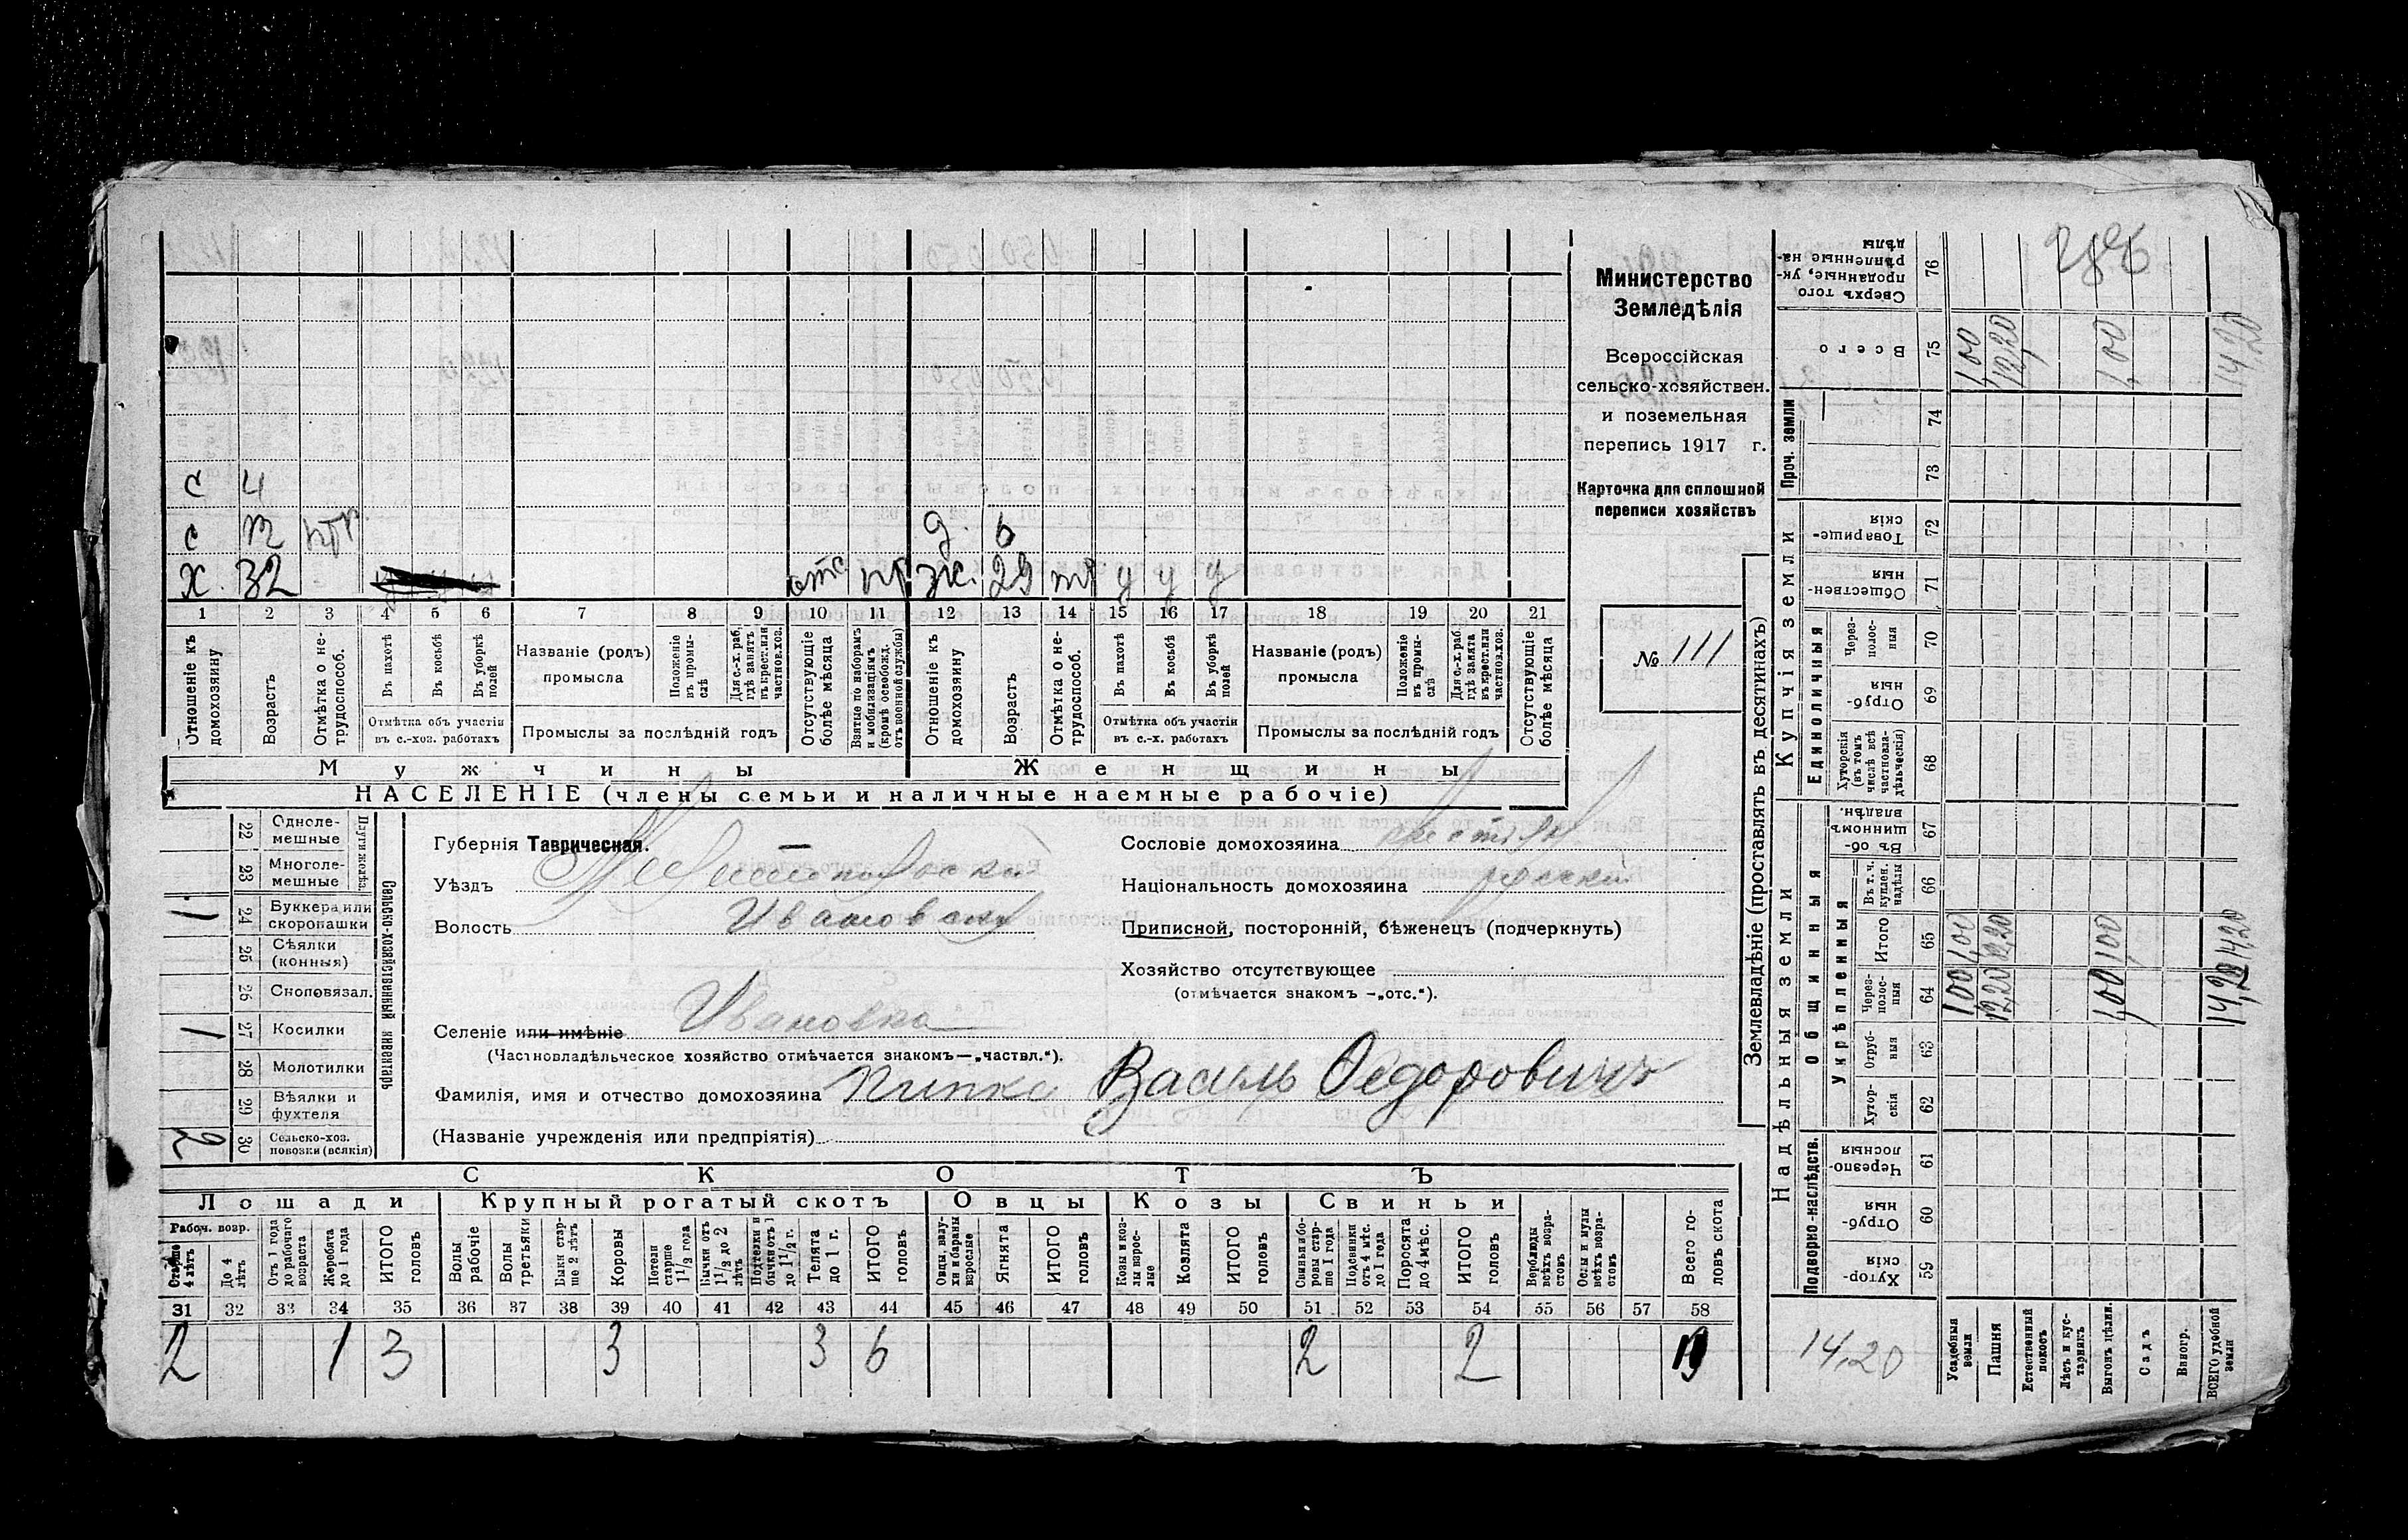 с 4
с
д. 6
Х. 32 отс жс. 29 у у у
1 2 3 4 5 6 7 8 9 10 11 12 13 14 15 16 17 18 19 20 21
Отношеніе къ домохозяину
Возрастъ
Отмѣтка о нетрудоспособ.
Въ пахотѣ
Въ косьбѣ
Въ уборкѣ полей
Отмѣтка объ участіи въ с.-хоз. работахъ
Названіе (родъ) промысла
Положеніе въ промыслѣ
Для с.-х. раб. гдѣ занятъ въ крест. или частнов. хоз.
Промыслы за послѣдній годъ
Отсутствующіе болѣе мѣсяца
Взятые по наборамъ и мобилизаціямъ (кромѣ освобожд. отъ военной службы)
Отношеніе къ домохозяину
Возрастъ
Отмѣтка о нетрудоспособ.
Въ пахотѣ
Въ косьбѣ
Въ уборкѣ полей
Отмѣтка объ участіи въ с.-х. работахъ
Названіе (родъ) промысла
Положеніе въ промыслѣ
Для с.-х. раб. гдѣ занята въ крест. или частнов. хоз.
Промыслы за послѣдній годъ
Отсутствующіе болѣе мѣсяца
Мужчины Женщины
НАСЕЛЕНІЕ (члены семьи и наличные наемные рабочіе)
Министерство
Земледѣлія
Всероссійская
сельско-хозяйствен.
и поземельная
перепись 1917 г.
Карточка для сплошной
переписи хозяйствъ
№ 111
22 Однолемешные
23 Многолемешные
1 24 Буккера или скоропашки
25 Сѣялки (конныя)
26 Сноповязал.
1 27 Косилки
28 Молотилки
29 Вѣялки и фухтеля
2 30 Сельско-хоз. повозки (всякія)
Сельско-хозяйственный инвентарь
Губернія Таврическая.
Уѣздъ Мелитопольскій
Волость Ивановская
Селеніе или имѣніе Ивановка
(Частновладѣльческое хозяйство отмѣчается знакомъ—„частвл.“).
Фамилія, имя и отчество домохозяина Василь Федоровичъ
(Названіе учрежденія или предпріятія)
Сословіе домохозяина
Національность домохозяина русскій
Приписной, посторонній, бѣженецъ (подчеркнуть)
Хозяйство отсутствующее
(отмѣчается знакомъ —„отс.“).
СКОТЪ
Лошади Крупный рогатый скотъ Овцы Козы Свиньи
Рабоч. возр.
Старше 4 лѣтъ
До 4 лѣтъ
Отъ 1 года до рабочаго возраста
Жеребята до 1 года
ИТОГО головъ
Волы рабочіе
Волы третьяки
Быки старше 2 лѣтъ
Коровы
Нетели старше 1½ года
Бычки отъ 1½ до 2 лѣтъ
Подтелки и бычки отъ 1 до 1½ г.
Телята до 1 г.
ИТОГО головъ
Овцы, валухи и бараны взрослые
Ягнята
ИТОГО головъ
Козы и козлы взрослые
Козлята
ИТОГО головъ
Свиньи и боровы старше 1 года
Подсвинки отъ 4 мѣс. до 1 года
Поросята до 4 мѣс.
ИТОГО головъ
Верблюды всѣхъ возрастовъ
Ослы и мулы всѣхъ возрастовъ
Всего головъ скота
31 32 33 34 35 36 37 38 39 40 41 42 43 44 45 46 47 48 49 50 51 52 53 54 55 56 57 58
2 1 3 3 3 6 2 2
Землевладѣніе (проставлять въ десятинахъ)
Надѣльныя земли
Купчія земли
Проч. земли
Подворно-наслѣдств.
Общинныя
Укрѣпленныя
Единоличныя
Хуторскія 59
Отрубныя 60
Черезполосныя 61
Хуторскія 62
Отрубныя 63
Черезполосныя 64 1,00 12,20 1,00
Итого 65 1,00 12,20 1,00 14,20
Въ т. ч. куплен. надѣлы 66
Въ общинномъ владѣн. 67
Хуторскія (въ томъ числѣ всѣ частновладѣльческія) 68
Отрубныя 69
Черезполосныя 70
Общественныя 71
Товарищескія 72
73
74
Всего 75 1,00 12,20 1,00 14,20
Сверхъ того проданные, укрѣпленные надѣлы 76
14,20
Усадебныя земли
Пашня
Естественный покосъ
Лѣсъ и кустарникъ
Выгонъ цѣлин.
Садъ
Виногр.
ВСЕГО удобной земли